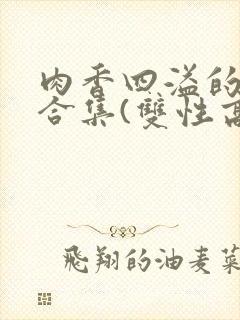 肉香四溢的
合集(雙性
飛翔的油麦菜